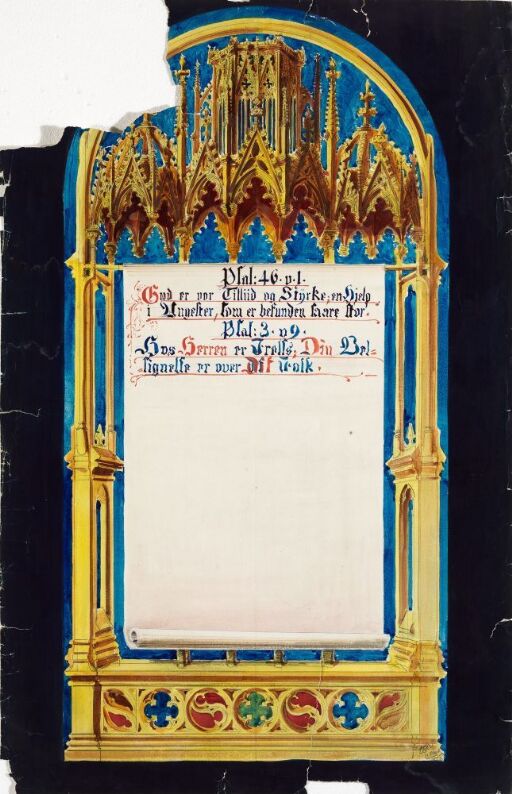 Psal: 46. v. 1.
Gud er vor Tilliid og Styrke, en Hielp
i Angester, som er befunden saare stor.
Psal: 3. v 9.
Hos Herren er Frelse; Din Vel-
signelse er over Dit Folk.